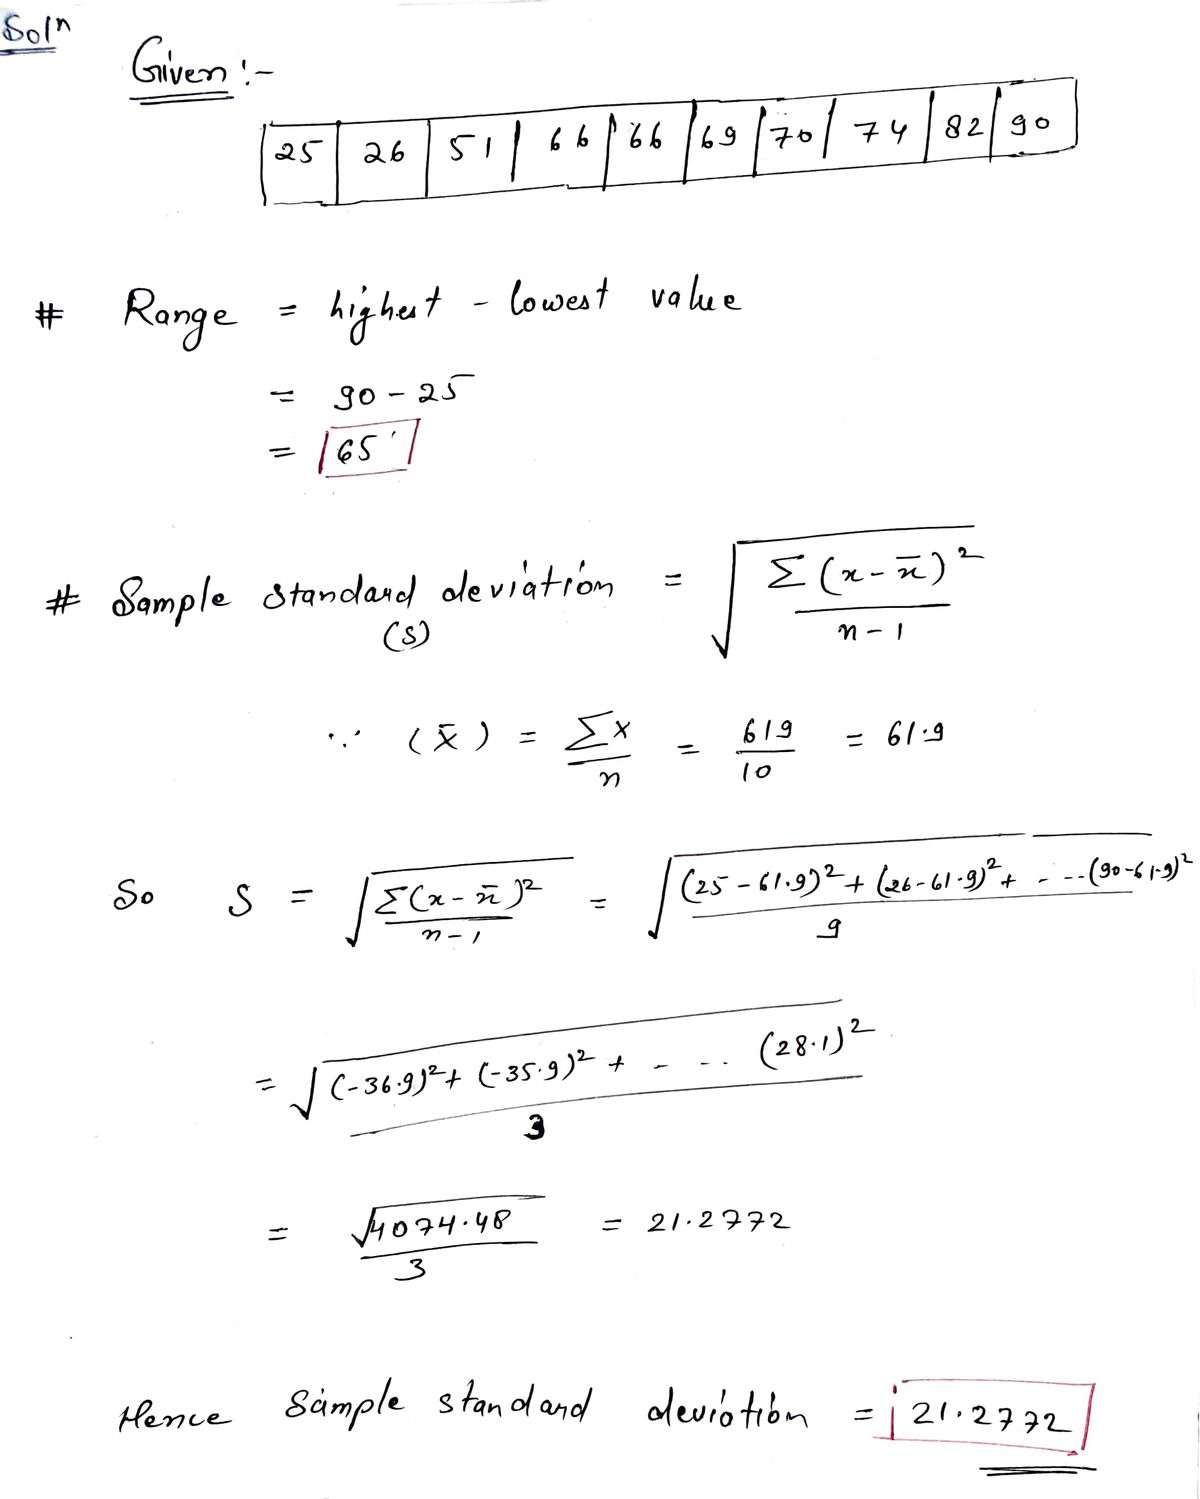 Solⁿ
Given :-
25 | 26 | 51 | 66 | 66 | 69 | 70 | 74 | 82 | 90
# Range = highest - lowest value
= 90 - 25
= 65
# Sample standard deviation (s) = √(Σ(x - x̄)² / n - 1)
∵ (x̄) = Σx / n = 619 / 10 = 61.9
So S = √(Σ(x - x̄)² / n - 1) = √((25 - 61.9)² + (26 - 61.9)² + - -- (90 - 61.9)² / 9)
= √((-36.9)² + (-35.9)² + - - .. (28.1)²) / 3
= √4074.48 / 3 = 21.2772
Hence Sample standard deviation = 21.2772